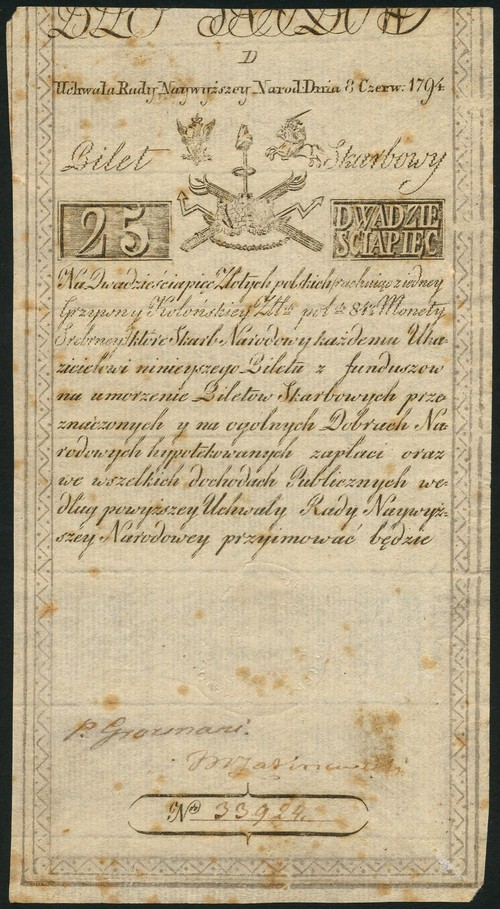 D
Uchwała Rady Naywyższey Narod: Dnia 8 Czerw: 1794
Bilet Skarbowy
25 DWADZIE
ŚCIAPIĘĆ
Na Dwadzieściapięć Złotych polskich rachuiąc z iedney
Grzywny Kolońskiey Złt. pol. 84½ Monety
Srebrney które Skarb Narodowy każdemu Oka-
zicielowi ninieyszego Biletu z funduszow
na umorzenie Biletow Skarbowych prze-
znaczonych y na ogolnych Dobrach Na-
rodowych hypotekowanych zapłaci oraz
we wszelkich dochodach Publicznych we-
dług powyższey Uchwały Rady Naywyż-
szey Narodowey przyimować będzie
P. Grozmani.
No 33924.